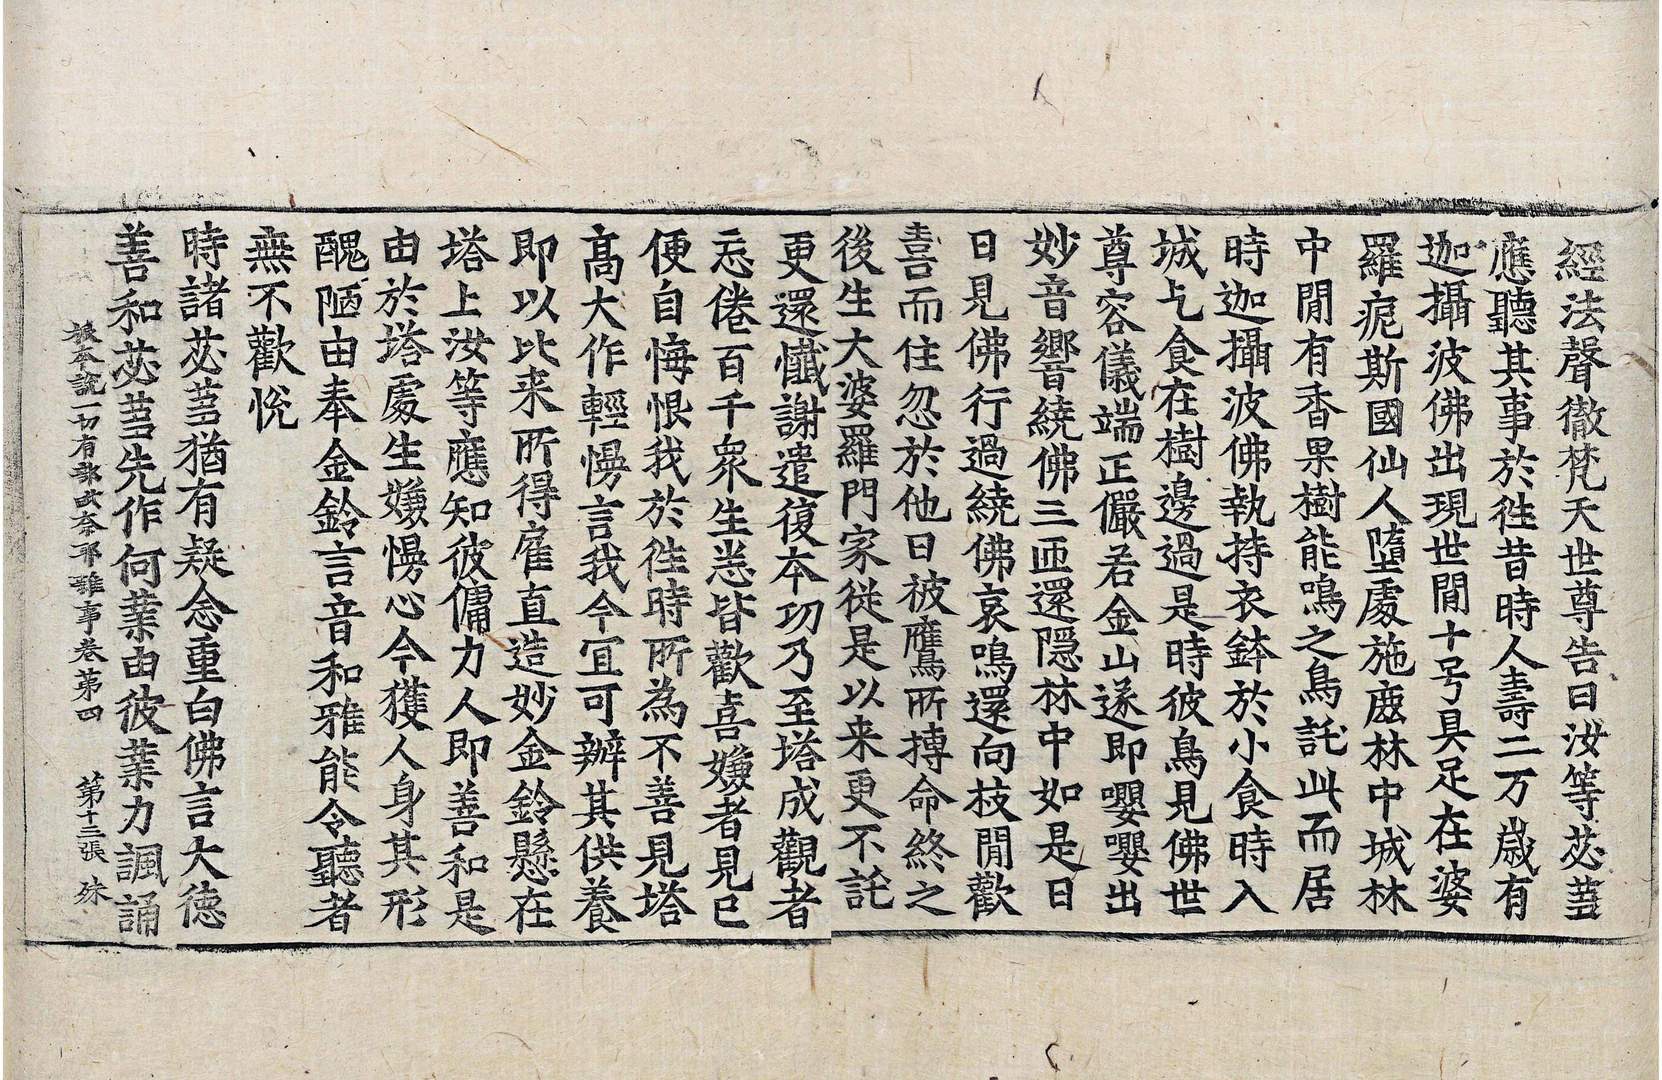 經法聲徹梵天世尊告曰汝等苾蒭
應聽其事於徃昔時人壽二万歲有
迦攝波佛出現世閒十号具足在婆
羅痆斯國仙人墮處施鹿林中城林
中閒有香果樹能鳴之鳥託此而居
時迦攝波佛執持衣鉢於小食時入
城乞食在樹邊過是時彼鳥見佛世
尊容儀端正儼若金山遂即嚶嚶出
妙音響繞佛三匝還隱林中如是日
日見佛行過繞佛哀鳴還向枝閒歡
喜而住忽於他日被鷹所搏命終之
後生大婆羅門家從是以来更不託
更還懺謝遣復本功乃至塔成觀者
忘倦百千衆生悉皆歡喜嫌者見已
便自悔恨我於徃時所為不善見塔
高大作輕慢言我今宜可辨其供養
即以比来所得雇直造妙金鈴懸在
塔上汝等應知彼傭力人即善和是
由於塔處生嫌慢心今獲人身其形
醜陋由奉金鈴言音和雅能令聽者
無不歡悅
時諸苾蒭猶有疑念重白佛言大德
善和苾蒭先作何業由彼業力諷誦
根本說一切有部毗奈耶雜事卷第四 第十二張 殊